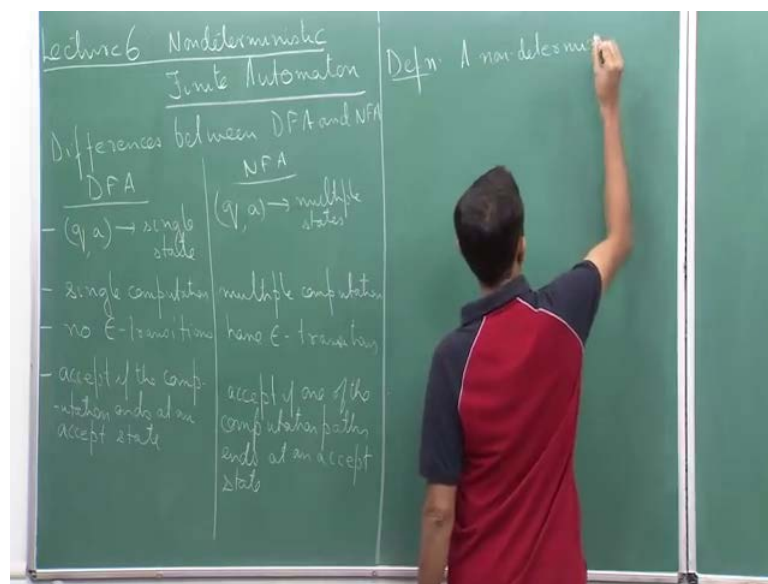 Lecture 6 Nondeterministic
Finite Automaton
Differences between DFA and NFA
DFA
- (q, a) → single
state
- single computation
- no ε-transitions
- accept if the comp-
-utation ends at an
accept state
NFA
(q, a) → multiple
states
multiple computation
have ε-transitions
accept if one of the
computation paths
ends at an accept
state
Defn. A non-determin